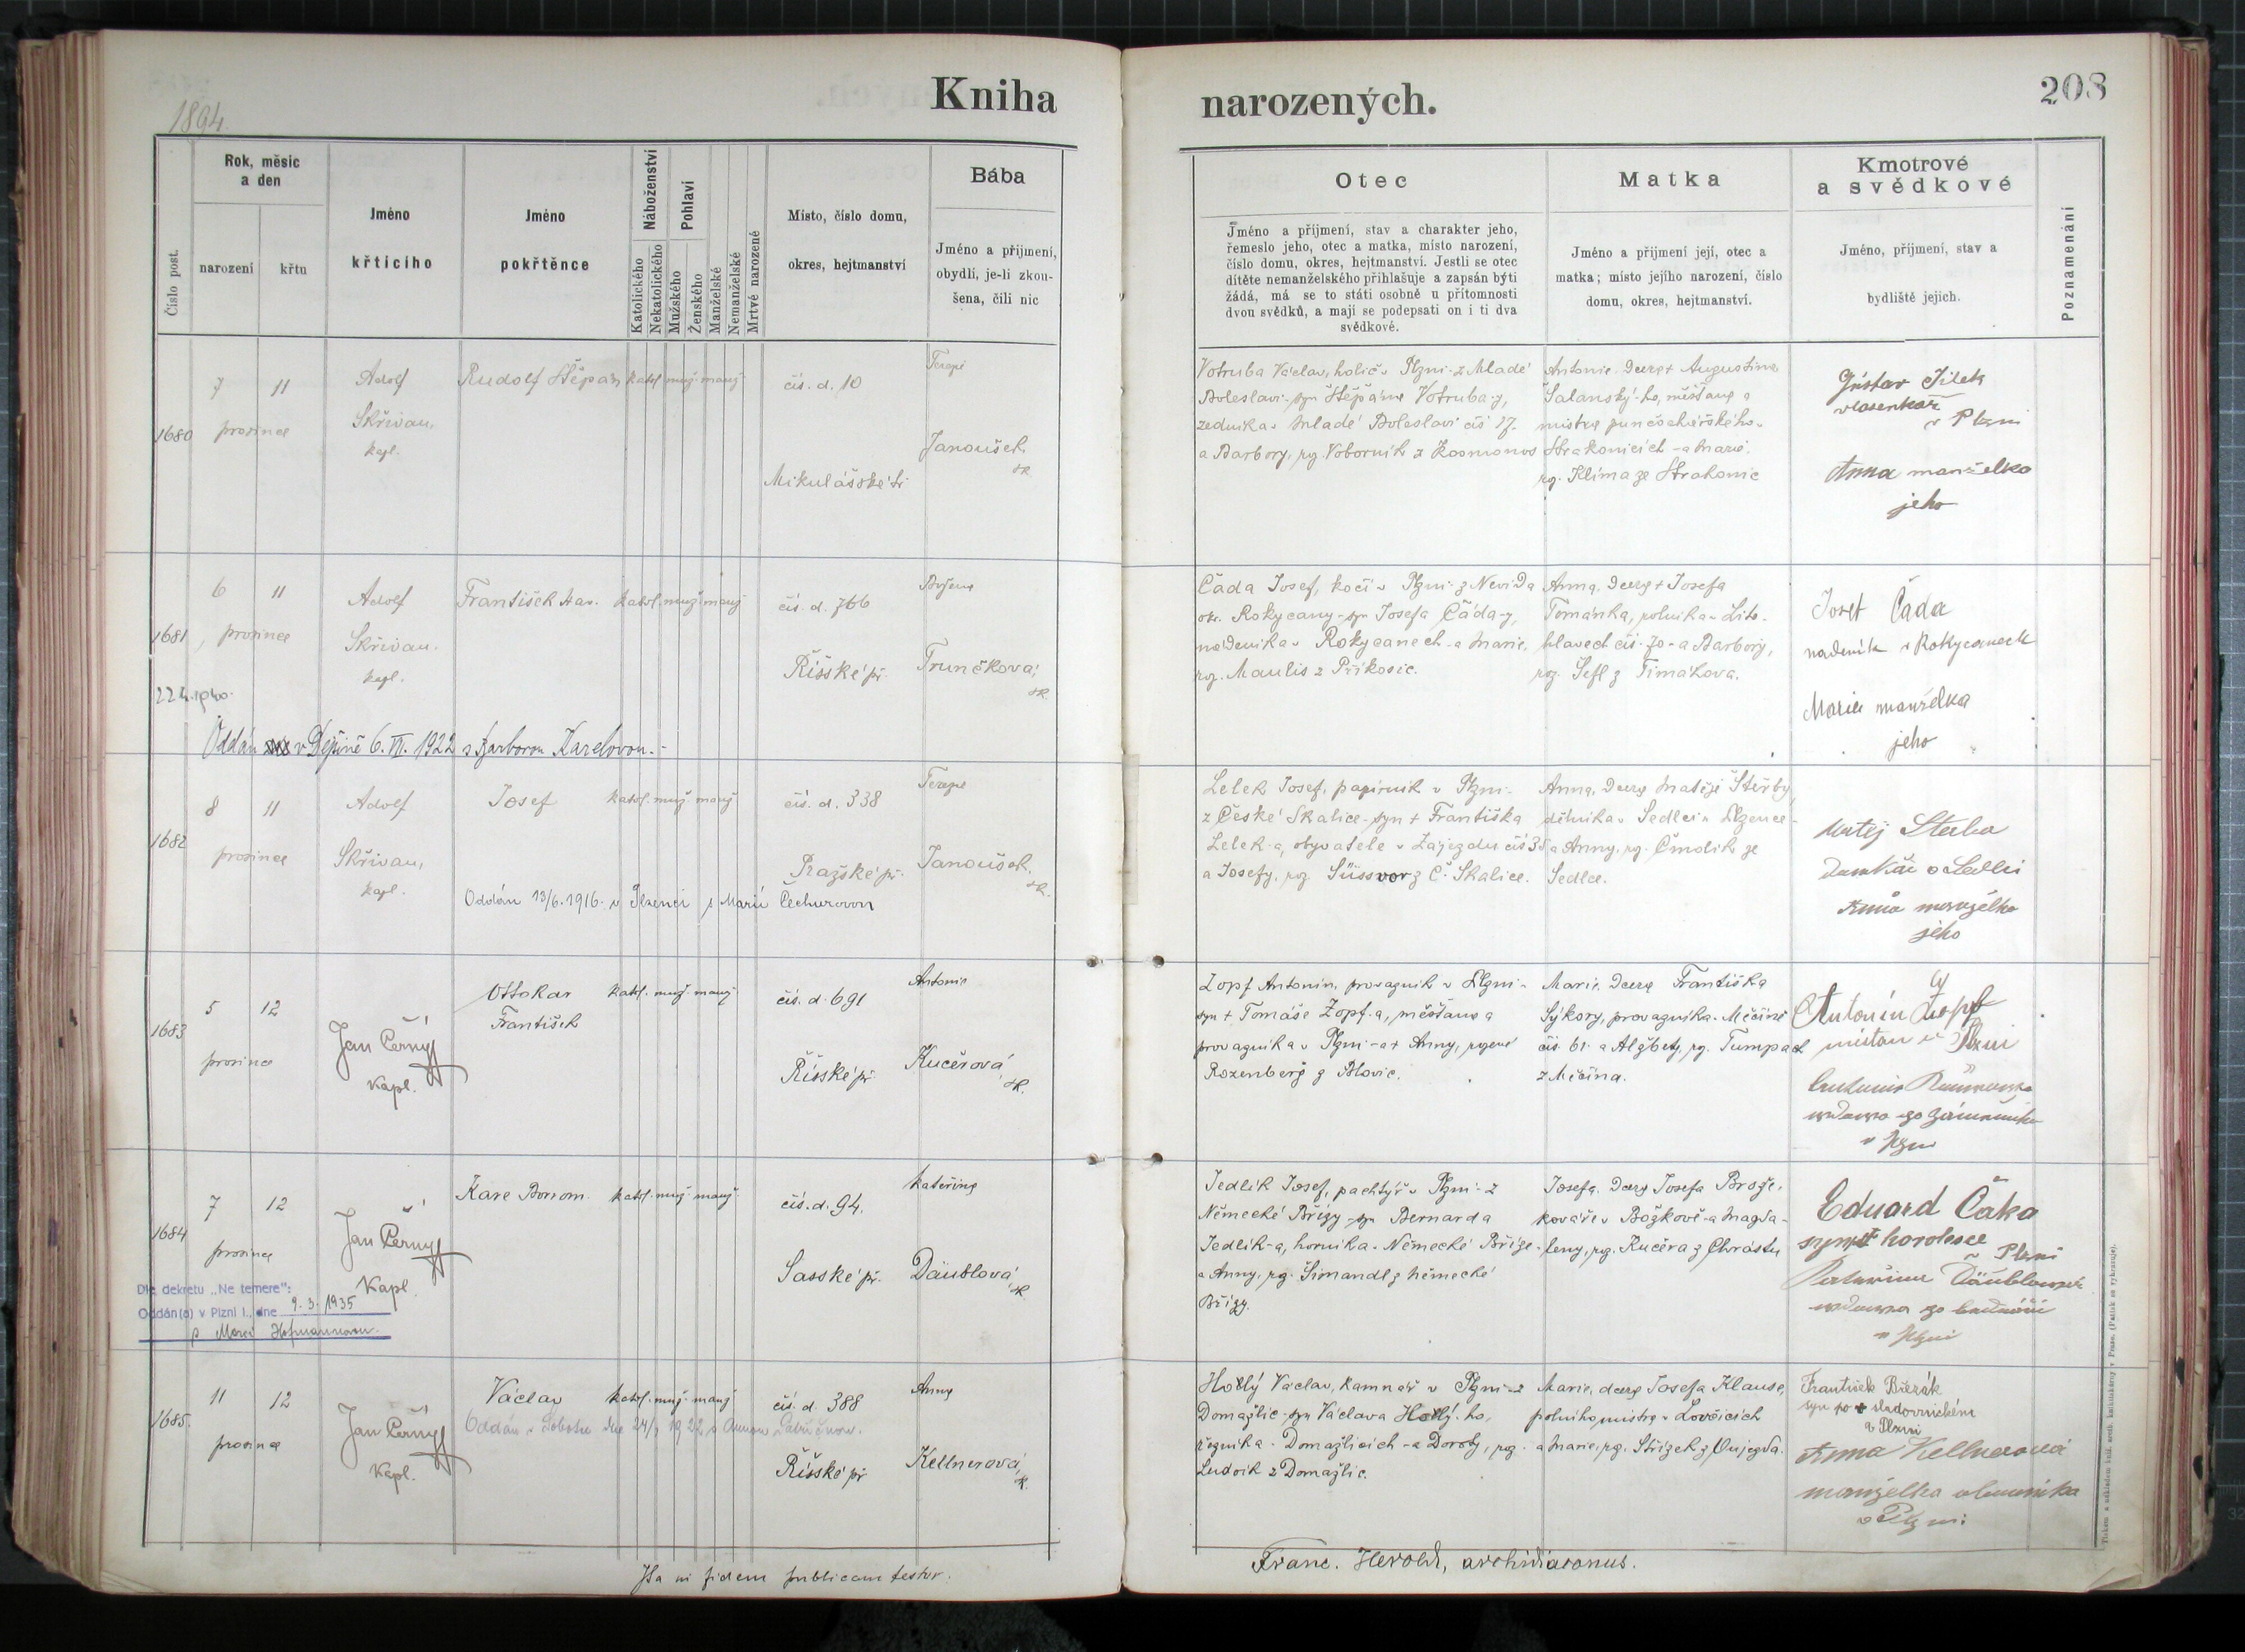 1894.
Kniha
narozených.
208
Číslo post.
Rok, měsíc
a den
narození
křtu
Jméno
křtícího
Jméno
pokřtěnce
Náboženství
Katolického
Nekatolického
Pohlaví
Mužského
Ženského
Manželské
Nemanželské
Mrtvě narozené
Místo, číslo domu,
okres, hejtmanství
Bába
Jméno a příjmení,
obydlí, je-li zkou-
šena, čili nic
Otec
Jméno a příjmení, stav a charakter jeho,
řemeslo jeho, otec a matka, místo narození,
číslo domu, okres, hejtmanství. Jestli se otec
dítěte nemanželského přihlašuje a zapsán býti
žádá, má se to státi osobně u přítomnosti
dvou svědků, a mají se podepsati on i ti dva
svědkové.
Matka
Jméno a příjmení její, otec a
matka; místo jejího narození, číslo
domu, okres, hejtmanství.
Kmotrové
a svědkové
Jméno, příjmení, stav a
bydliště jejich.
Poznamenání
1680
7 11
prosince
Adolf
Skřivan,
kapl.
Rudolf Štěpán
katol. muž. manž.
čís. d. 10
Mikulášská tř.
Terezie
Janoušek
Votruba Václav, holič v Plzni - z Mladé
Boleslavi - syn Štěpána Votruba-y,
zedníka v Mladé Boleslavi čís 17.
a Barbory, roz. Voborník z Kosmonos
Antonie, dcera + Augustina
Šalanský-ho, měšťana a
mistra punčochářského v
Strakonicích - a Marie,
roz. Klíma ze Strakonic
Gustav Jílek
vlasenkář
v Plzni
Anna manželka
jeho
1681
6 11
prosince
Adolf
Skřivan,
kapl.
František Xav.
katol. muž. manž.
čís. d. 766
Říšské př.
Božena
Trunčková,
Čada Josef, kočí v Plzni - z Nevida
okr. Rokycany - syn Josefa Čáda-y,
nádeníka v Rokycanech - a Marie,
roz. Maulis z Příkosic.
Anna, dcera + Josefa
Tománka, rolníka v Lito-
hlavech čís. 70 - a Barbory,
roz. Šefl z Timákova.
Josef Čada
nádeník v Rokycanech
Marie manželka
jeho
Oddán v Dýšině 6. VI. 1922 s Barborou Karelovou. -
1682
8 11
prosince
Adolf
Skřivan,
kapl.
Josef
katol. muž. manž.
čís. d. 338
Pražské př.
Terezie
Janoušek,
Oddán 13/6. 1916. v Plzenci s Marií Čechurovou
Lelek Josef, papírník v Plzni -
z České Skalice - syn + Františka
Lelek-a, obyvatele v Zájezdu čís 38
a Josefy, roz. Süssvor z Č. Skalice.
Anna, dcera Matěje Štěrby,
dělníka v Sedlci u Plzence -
a Anny, roz. Čmolík ze
Sedlce.
Matěj Sterba
Domkář v Sedlci
Anna manželka
jeho
1683
5 12
prosince
Jan Černý
kapl.
Ottokar
František
katol. muž. manž.
čís. d. 691
Říšské př.
Antonie
Kučerová,
Zopf Antonín, provazník v Plzni -
syn + Tomáše Zopf-a, měšťana a
provazníka v Plzni - a + Anny, rozené
Rozenberg z Blovic.
Marie, dcera Františka
Sýkory, provazníka v Měčíně
čís. 61. a Alžběty, roz. Tumpach
z Měčína.
Antonín Zopf
měšťan v Plzni
v Plzni
1684
7 12
prosince
Jan Černý
kapl.
Karel Borrom.
katol. muž. manž.
čís. d. 94.
Saské př.
Kateřina
Däublová,
Dle dekretu „Ne temere":
Oddán(a) v Plzni I., dne 9. 3. 1935
s Marií Hofmannovou.
Jedlík Josef, pachtýř v Plzni - z
Německé Břízy - syn Bernarda
Jedlík-a, horníka v Německé Bříze -
a Anny, roz. Šimandl z Německé
Břízy.
Josefa, dcera Josefa Brože,
kováře v Božkově - a Magda-
leny, roz. Kučera z Chrástu
Eduard Čaka
v Plzni
1685.
11 12
prosince
Jan Černý
kapl.
Václav
katol. muž. manž.
čís. d. 388
Říšské př.
Anna
Kellnerová,
Hollý Václav, kamnář v Plzni - z
Domažlic - syn Václava Hollý-ho,
řezníka v Domažlicích - a Doroty, roz.
Ludvík z Domažlic.
Marie, dcera Josefa Klause,
polního mistra v Lovčicích
a Marie, roz. Střízek z Oujezda.
František Bízrák
v Plzni
Anna Kellnerová
manželka
v Plzni
Ita in fidem publicam testor.
Franc. Herold, archidiaconus.